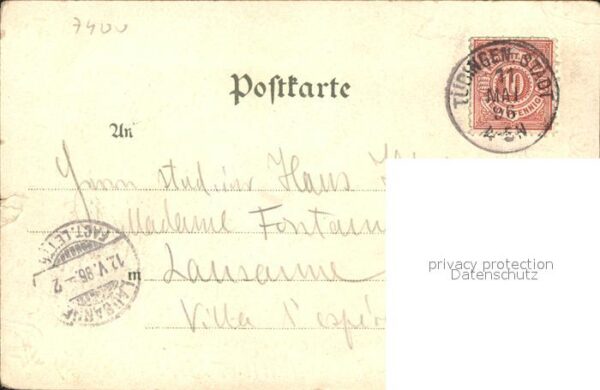 7400
TÜBINGEN STADT
11
MAI
96
4-5N
10
PFENNIG
Postkarte
An
Herrn studiur Hans
Madame Fontain
m Lausanne
Villa l'espér
LAUSANNE
12.V.96-2
FACT. LETT
privacy protection
Datenschutz